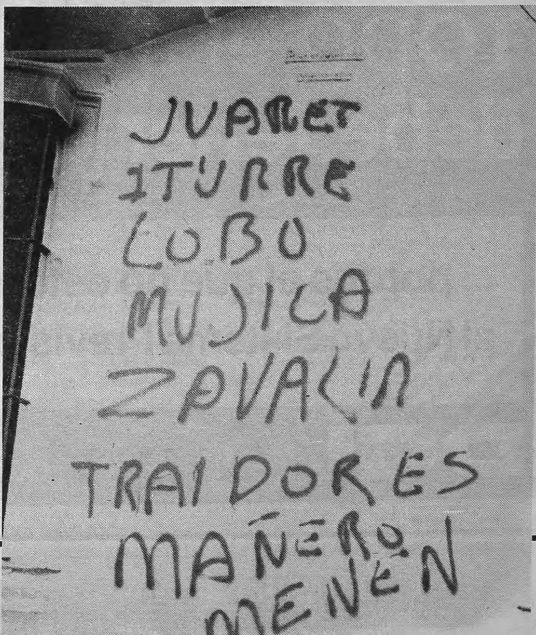 JUAREZ
ITURRE
LOBO
MUJICA
ZAVALIA
TRAIDORES
MAÑERO
MENEN